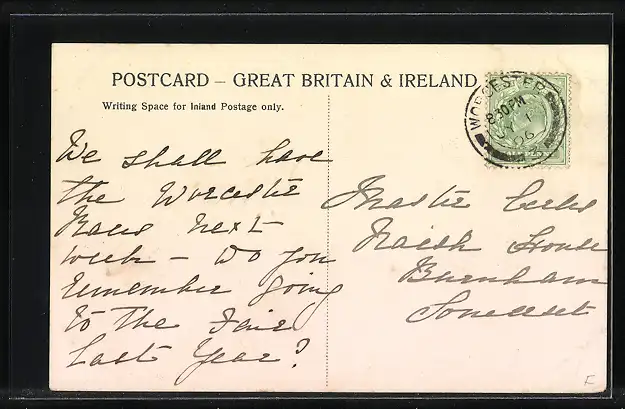 POSTCARD – GREAT BRITAIN & IRELAND
Writing Space for Inland Postage only.
WORCESTER
8.30PM
We shall have
the Worcester
Races next
week – Do you
remember going
to the Fair
last Year?
Master
Naish House
Burnham
Somerset
F